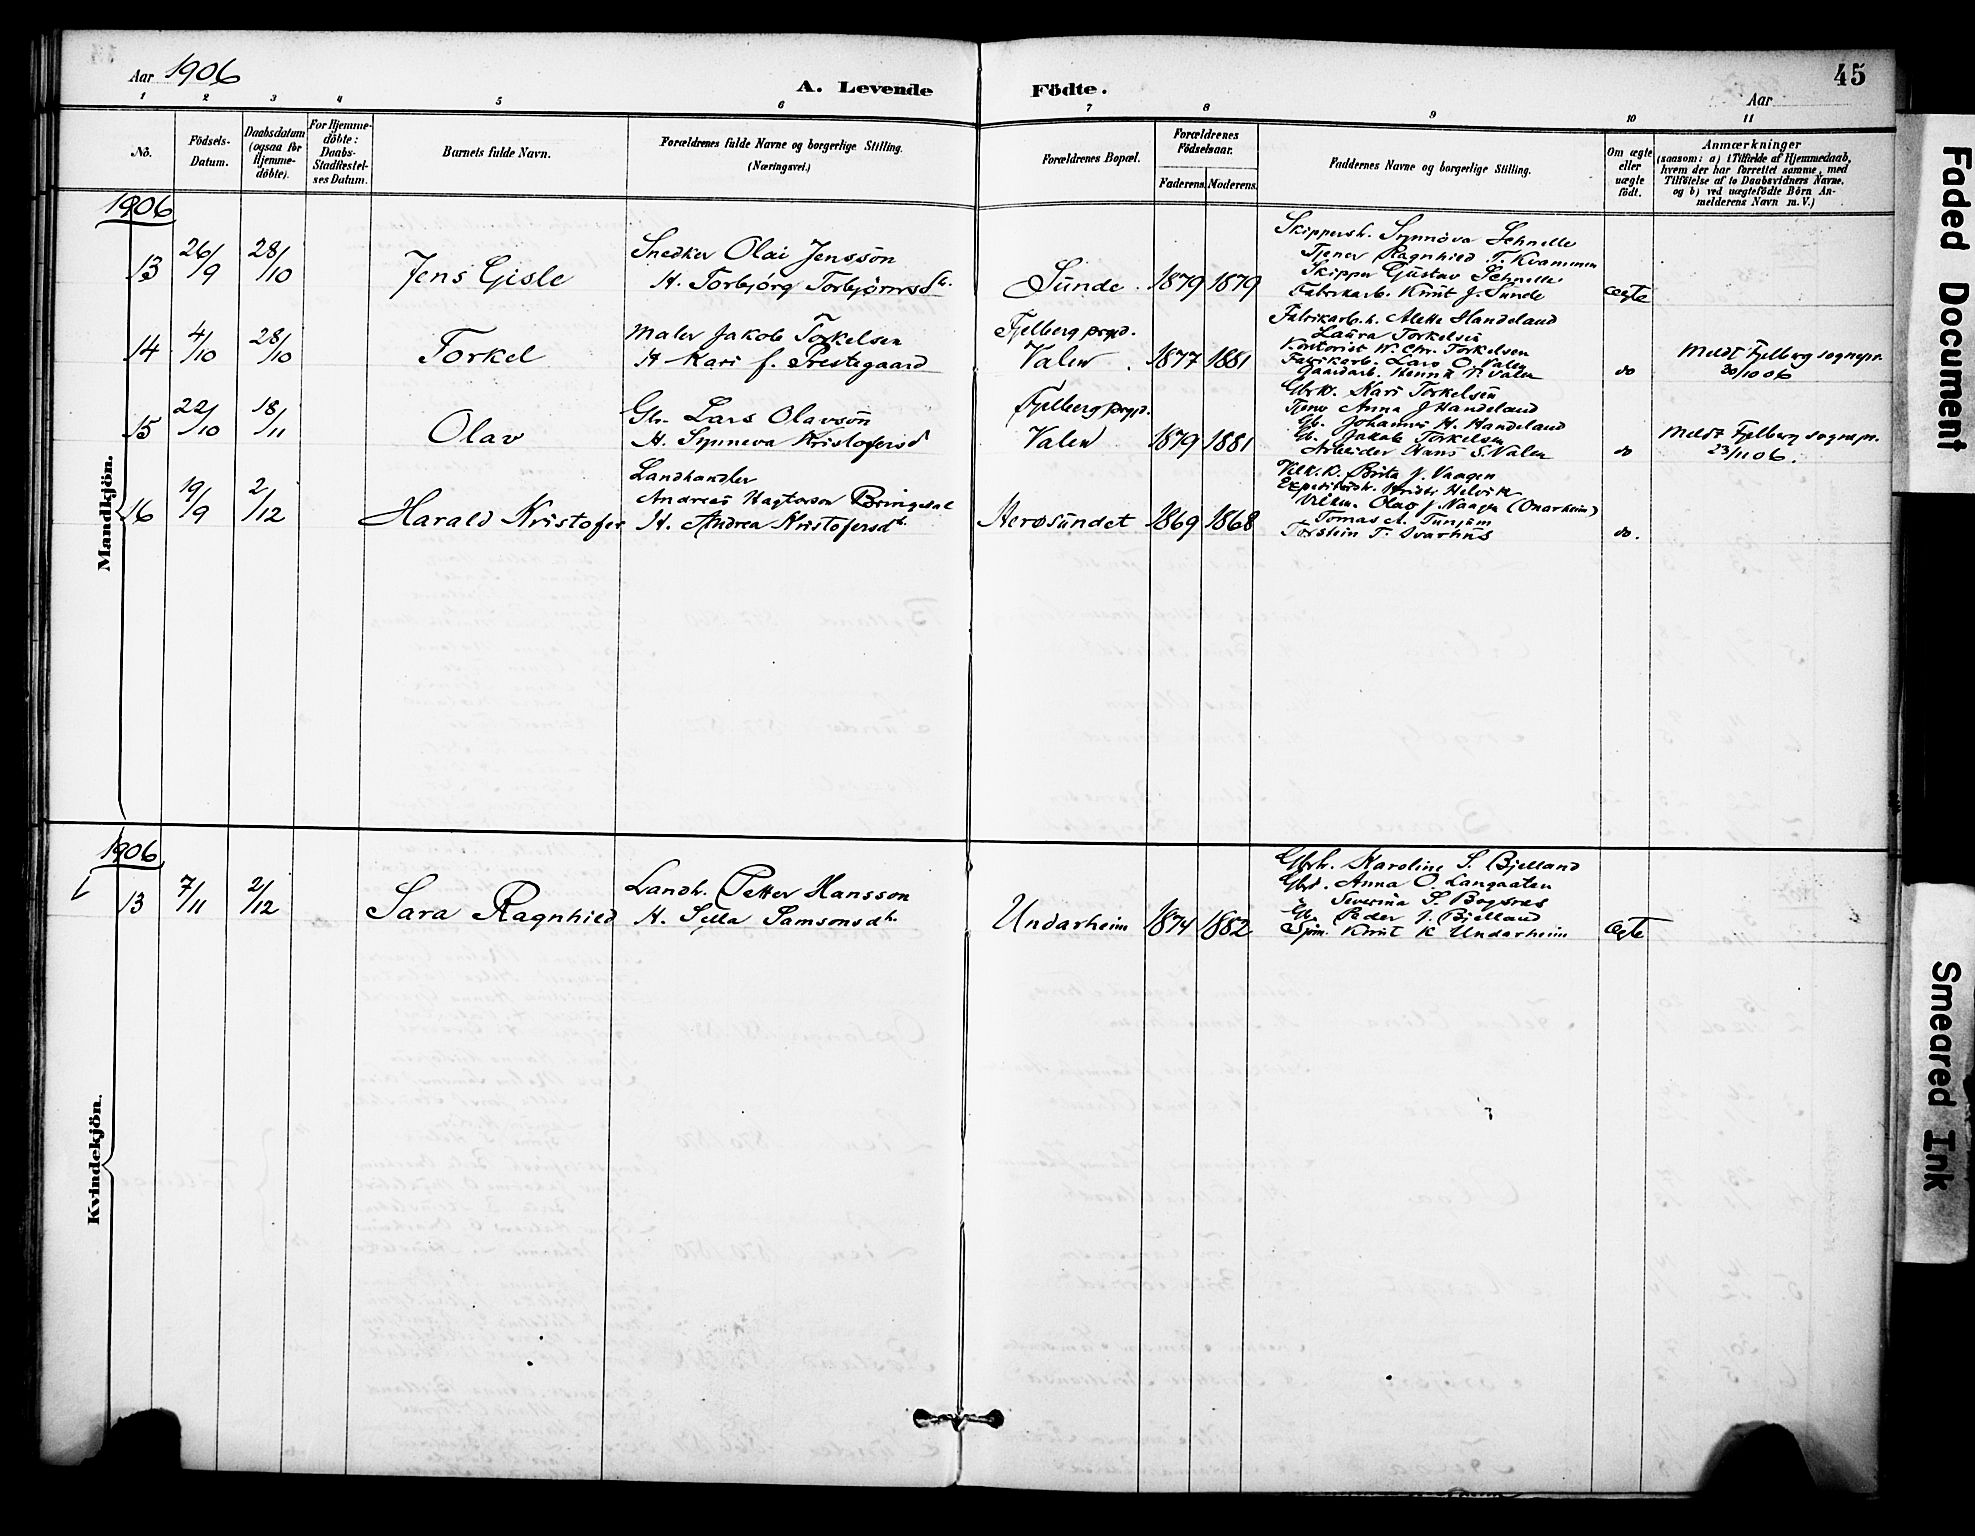 Aar 1906
A. Levende
Födte.
45
Aar
1 2 3 4 5 6 7 8 9 10 11
Nö.
Födsels-
Datum.
Daabsdatum
(ogsaa for
Hjemme-
döbte).
For Hjemme-
döbte:
Daabs-
Stadfæstel-
ses Datum.
Barnets fulde Navn.
Forældrenes fulde Navne og borgerlige Stilling.
(Næringsvei.)
Forældrenes Bopæl.
Forældrenes
Födselsaar.
Faderens. Moderens.
Faddernes Navne og borgerlige Stilling.
Om ægte
eller
uægte
födt.
Anmærkninger
(saasom: a) i Tilfælde af Hjemmedaab,
hvem der har forrettet samme, med
Tilföielse af to Daabsvidners Navne,
og b) ved uægtefödte Börn An-
melderens Navn m. V.)
Mandkjön.
1906
13 26/9 28/10 Jens Gisle
Snedker Olai Jenssön
H. Torbjörg Torbjörnsdh.
Sunde 1879 1879
Skippersh. Synnöva Schnelle
Tjener Ragnhild T. Kvammen
Skipper Gustav Schnelle
Fabrikarb. Knut J. Sunde
ægte
14 4/10 28/10 Torkel
Maler Jakob Torkelsen
H. Kari f. Prestegaard
Fjelberg prgd.
Valen 1877 1881
Fabrikarb. h. Alette Handeland
Laura Torkelsen
Kontorist W. Chr. Torkelsen
Fabrikarb. Lars O. Valen
Gaardarb. Henrik Valen
do
Meldt Fjelberg sognepr.
30/10 06
15 22/10 18/11 Olav
Gbr. Lars Olavsön
H. Synneva Kristofersd
Fjelberg prgd.
Valen 1879 1881
Gbrk. Kari Torkelsen
Tjene Anna J Handeland
Gb. Johannes H. Handeland
Gb. Jakob Torkelsen
Arbeider Hans S. Valen
do
Meldt Fjelberg sognepr.
23/11 06.
16 19/9 2/12 Harald Kristofer
Landhandler
Andreas Hagtorson Bringedal
H. Andrea Kristofersdh.
Herøsundet 1869 1868
Brita J. Vaagen
Helvik
Olav J Vaage (Onarheim)
Tomas A.
Torstein T. Svarhus
do.
Kvindekjön.
1906
13 7/11 2/12 Sara Ragnhild
Landh. Petter Hansson
H. Sella Samsonsdh.
Undarheim 1874 1882
Gbrh. Karoline S. Bjelland
Gbd. Anna O. Langaaten
" Severina S. Bogsnes
Gb. Peder J. Bjelland
Spm. Knut K Undarheim
ægte
Faded Document
Smeared Ink